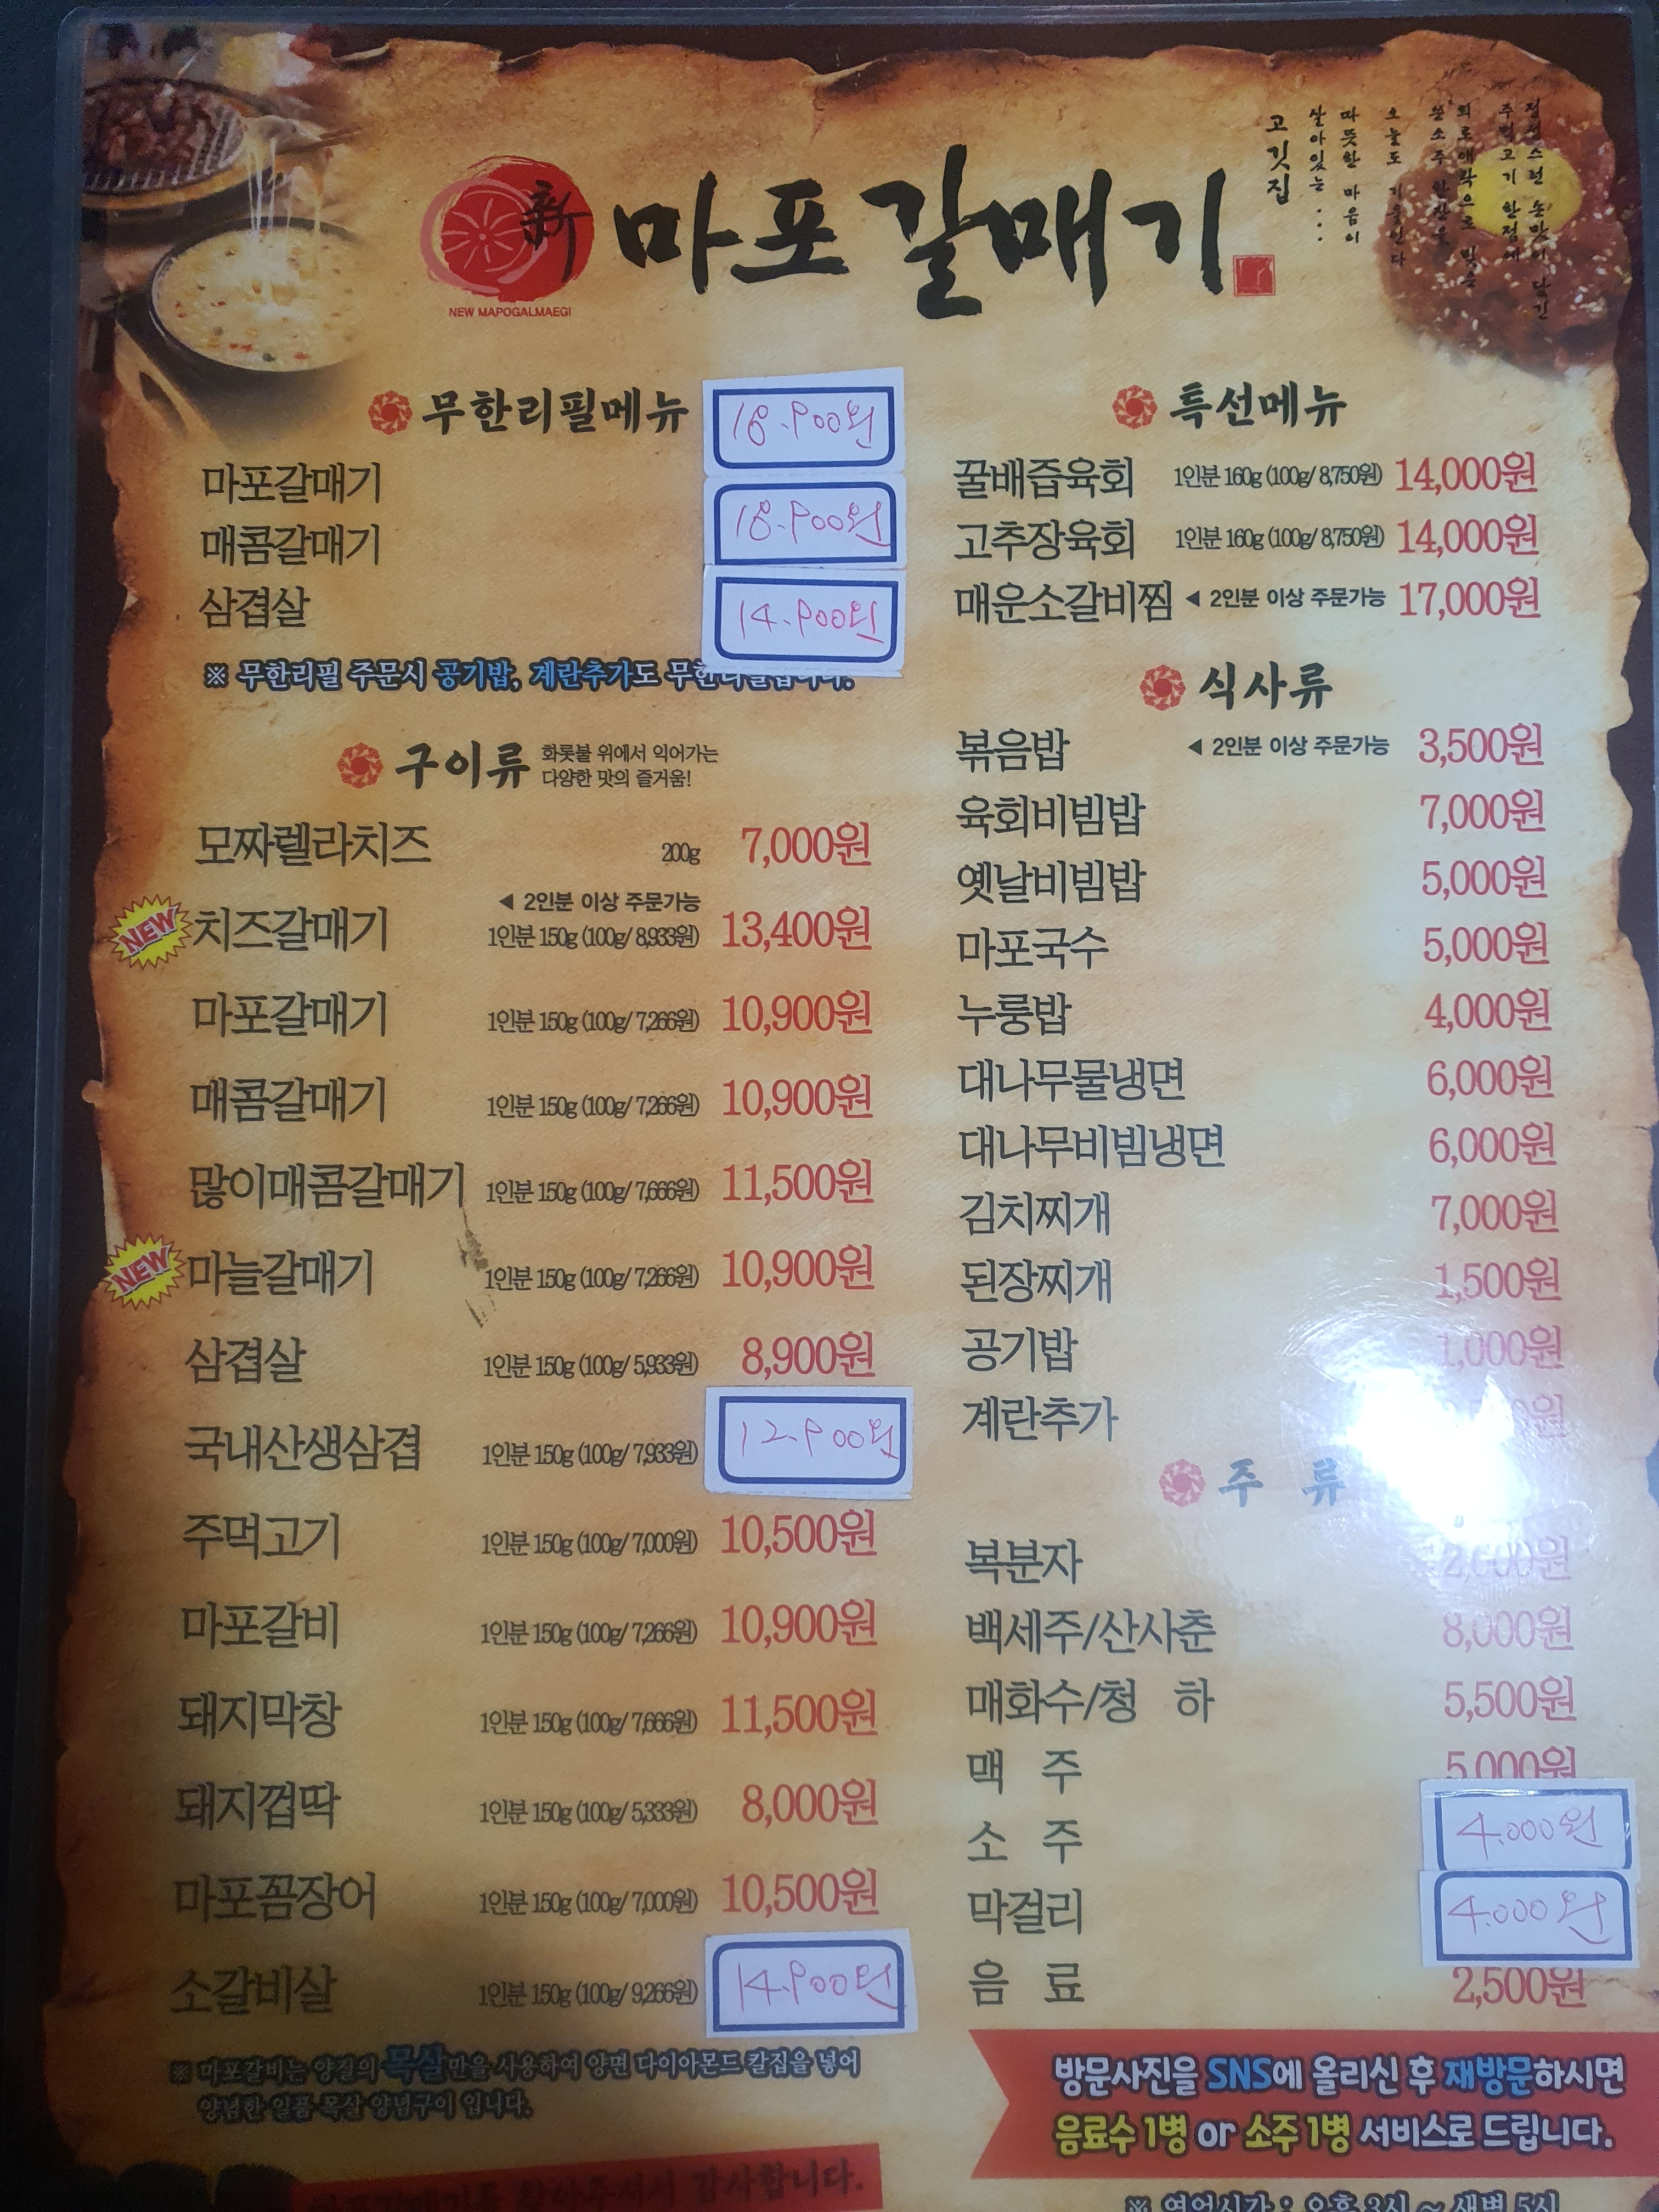 정성스런 손맛이 담긴
주먹고기 한점에
쓴소주 한잔을
오늘도 기울인다
따뜻한 마음이
살아있는...
고깃집
新 마포갈매기
NEW MAPOGALMAEGI
무한리필메뉴
마포갈매기 18.900원
매콤갈매기 18.900원
삼겹살 14.900원
※ 무한리필 주문시 공기밥, 계란추가도 무한리필됩니다.
구이류 화롯불 위에서 익어가는
다양한 맛의 즐거움!
모짜렐라치즈 200g 7,000원
◀ 2인분 이상 주문가능
NEW 치즈갈매기 1인분 150g (100g/ 8,933원) 13,400원
마포갈매기 1인분 150g (100g/ 7,266원) 10,900원
매콤갈매기 1인분 150g (100g/ 7,266원) 10,900원
많이매콤갈매기 1인분 150g (100g/ 7,666원) 11,500원
NEW 마늘갈매기 1인분 150g (100g/ 7,266원) 10,900원
삼겹살 1인분 150g (100g/ 5,933원) 8,900원
국내산생삼겹 1인분 150g (100g/ 7,933원) 12.900원
주먹고기 1인분 150g (100g/ 7,000원) 10,500원
마포갈비 1인분 150g (100g/ 7,266원) 10,900원
돼지막창 1인분 150g (100g/ 7,666원) 11,500원
돼지껍딱 1인분 150g (100g/ 5,333원) 8,000원
마포꼼장어 1인분 150g (100g/ 7,000원) 10,500원
소갈비살 1인분 150g (100g/ 9,266원) 14.900원
※ 마포갈비는 양질의 목살만을 사용하여 양면 다이아몬드 칼집을 넣어
양념한 일품 목살 양념구이 입니다.
감사합니다.
특선메뉴
꿀배즙육회 1인분 160g (100g/ 8,750원) 14,000원
고추장육회 1인분 160g (100g/ 8,750원) 14,000원
매운소갈비찜 ◀ 2인분 이상 주문가능 17,000원
식사류
볶음밥 ◀ 2인분 이상 주문가능 3,500원
육회비빔밥 7,000원
옛날비빔밥 5,000원
마포국수 5,000원
누룽밥 4,000원
대나무물냉면 6,000원
대나무비빔냉면 6,000원
김치찌개 7,000원
된장찌개 1,500원
공기밥 1,000원
계란추가
주 류
복분자
백세주/산사춘 8,000원
매화수/청 하 5,500원
맥 주 5,000원
소 주 4.000원
막걸리 4.000원
음 료 2,500원
방문사진을 SNS에 올리신 후 재방문하시면
음료수 1병 or 소주 1병 서비스로 드립니다.
※ 영업시간 : 오후 3시 ~ 새벽 5시